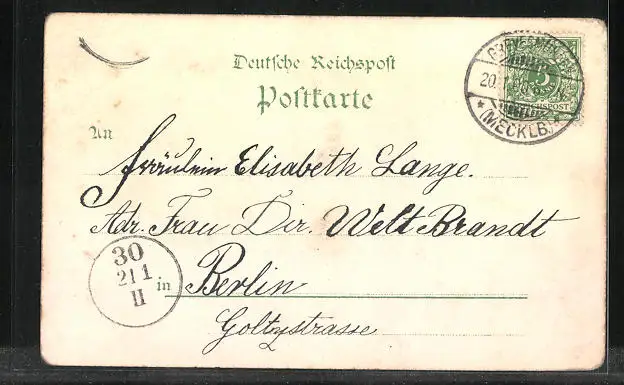 Deutsche Reichspost
Postkarte
An
Fräulein Elisabeth Lange.
Adr. Frau Dir. Welt Brandt
in Berlin
Goltzstrasse
(MECKLB.)
20
5
REICHSPOST
30
21 1
II